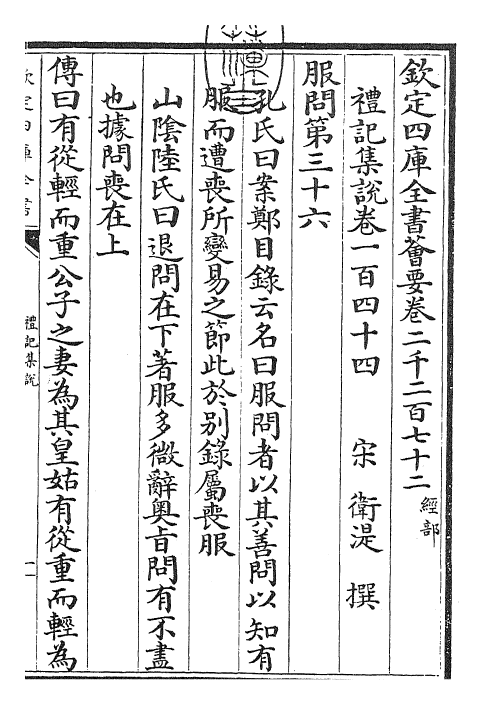 欽定四庫全書薈要卷二千二百七十二 經部
禮記集說卷一百四十四 宋 衛湜 撰
服問第三十六
孔氏曰案鄭目錄云名曰服問者以其善問以知有
服而遭喪所變易之節此於別錄屬喪服
山陰陸氏曰退問在下著服多微辭奥旨問有不盡
也據問喪在上
傳曰有從輕而重公子之妻為其皇姑有從重而輕為
欽定四庫全書
禮記集說
一